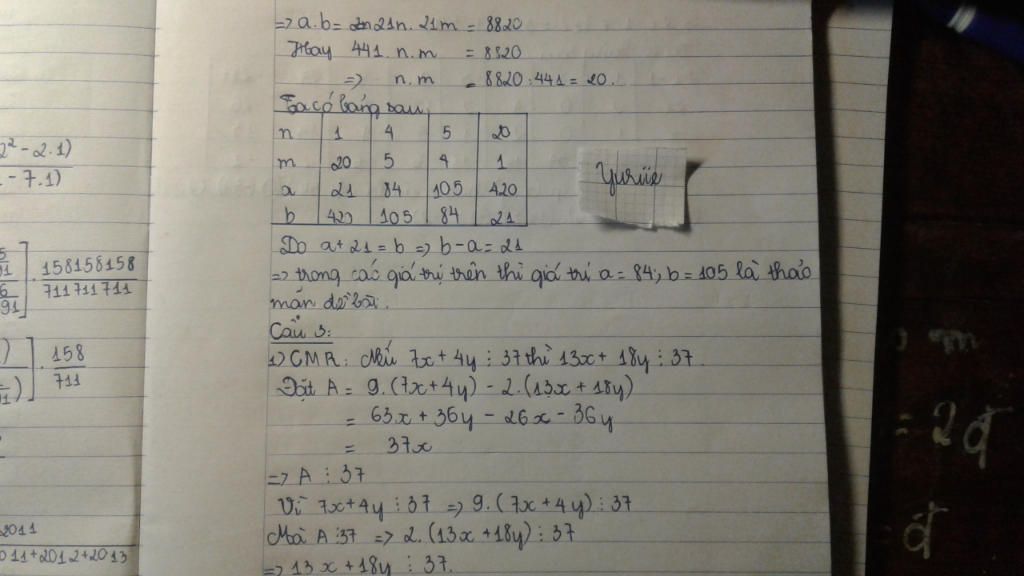 => a.b = 21n.21m = 8820
Hay 441.n.m = 8820
=> n.m = 8820:441 = 20.
Ta có bảng sau
n 1 4 5 20
m 20 5 4 1
a 21 84 105 420
b 420 105 84 21
Yurie
Do a + 21 = b => b - a = 21
=> trong các giá trị trên thì giá trị a = 84; b = 105 là thỏa
mãn đề bài.
Câu 3:
1) CMR: Nếu 7x + 4y ⋮ 37 thì 13x + 18y ⋮ 37.
Đặt A = 9.(7x + 4y) - 2.(13x + 18y)
= 63x + 36y - 26x - 36y
= 37x
=> A ⋮ 37
Vì 7x + 4y ⋮ 37 => 9.(7x + 4y) ⋮ 37
Mà A ⋮ 37 => 2.(13x + 18y) ⋮ 37
=> 13x + 18y ⋮ 37.
2² - 2.1)
- 7.1)
158158158
711711711
158
711
2011
011+2012+2013
m
= 2đ
= đ